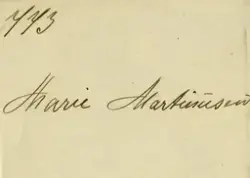 443
Marie Martinusen